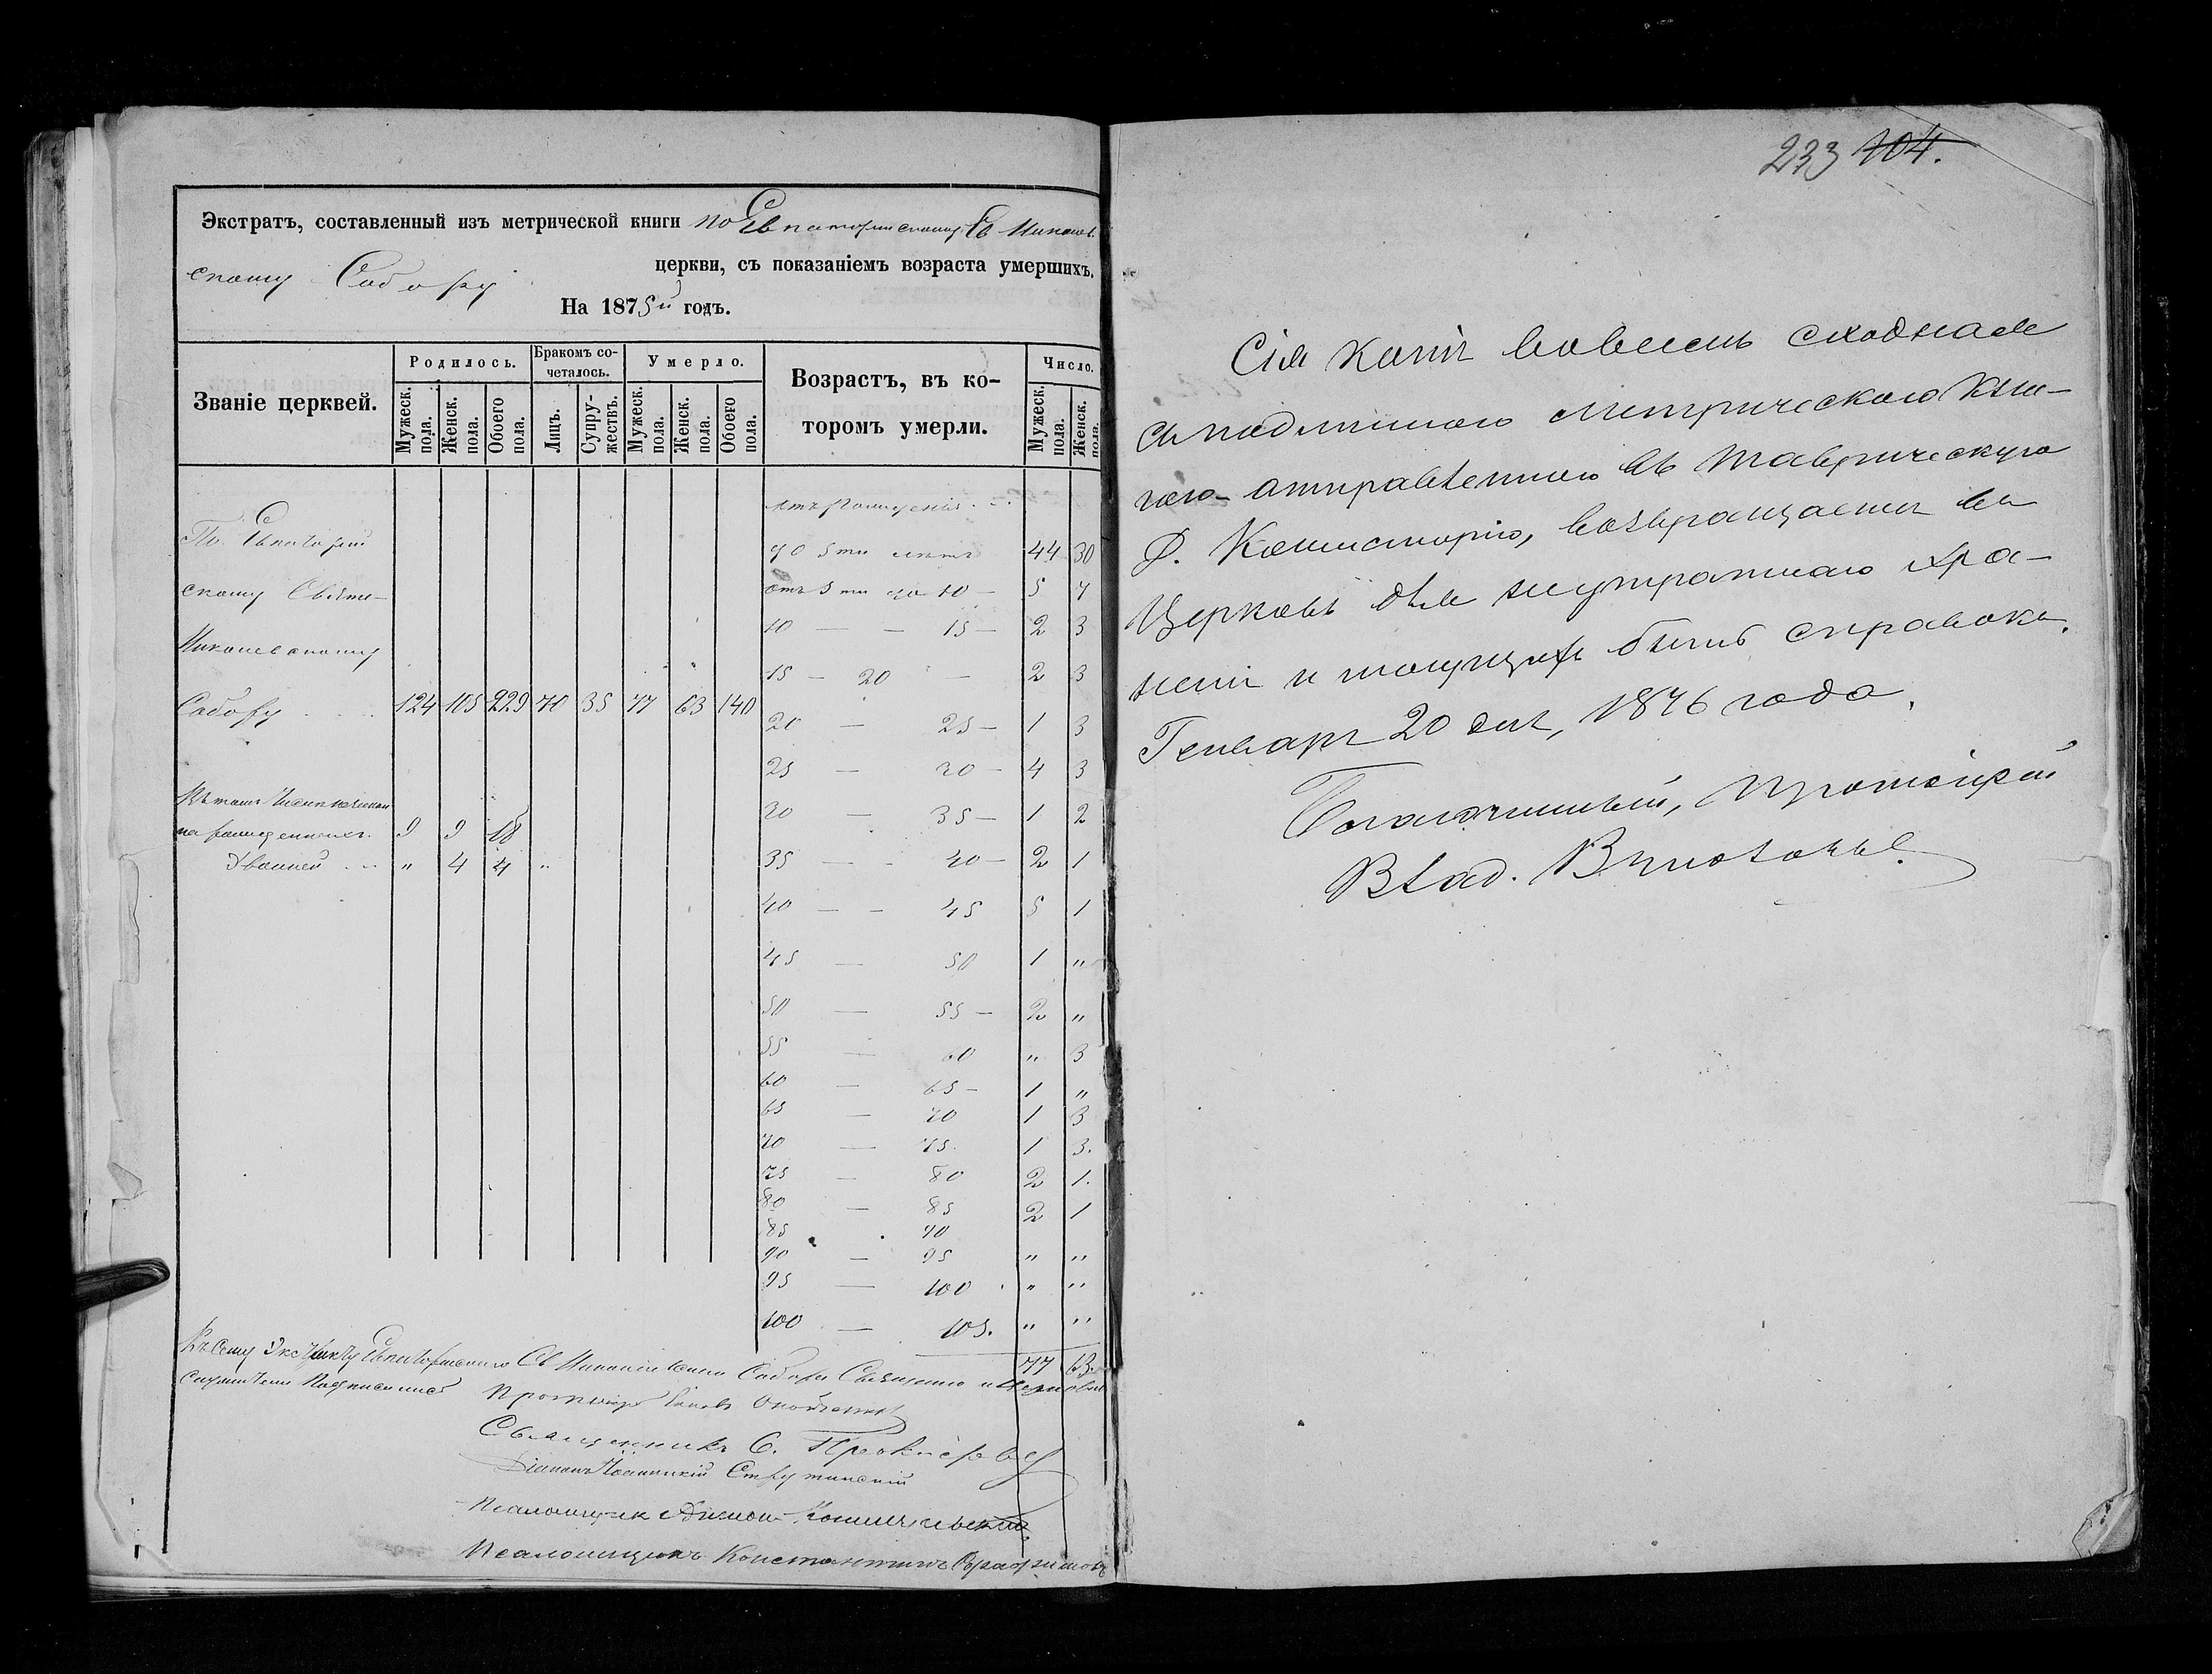 Экстратъ, составленный изъ метрической книги по Евпаторийскому Св Николаев
скому Собору церкви, съ показаніемъ возраста умершихъ.
На 1875й годъ.
Званіе церквей.
Родилось.
Бракомъ сочеталось.
Умерло.
Возрастъ, въ которомъ умерли.
Число.
Мужеск. пола.
Женск. пола.
Обоего пола.
Лицъ.
Супружествъ.
Мужеск. пола.
Женск. пола.
Обоего пола.
Мужеск. пола.
Женск. пола.
По Евпаторий
скому Свято
Николаевскому
Собору 124 105 229 70 35 77 63 140
Въ томъ числѣ
рожденныхъ 9 9 18
Двойней " 4 4 "
отъ рожденія
до 5ти лѣтъ 44 30
отъ 5ти до 10 5 7
10 — 15 — 2 3
15 — 20 — 2 3
20 — 25 — 1 3
25 — 30 — 4 3
30 — 35 — 1 2
35 — 40 — 2 1
40 — 45 5 1
45 — 50 1 "
50 — 55 — 2 "
55 — 60 " 3
60 — 65 — 1 "
65 — 70 1 3
70 — 75. 1 3.
75 — 80 2 1.
80 — 85 2 1
85 . 90
90 — 95 " "
95 — 100 " "
100 — 105. " "
77 63.
Къ сему Экстракту Евпаторійскаго Св Николаевскаго Собора Священно и Церковно
служители Подписались
Протоіерей
Священникъ С.
Діаконъ Струтинскій
Псаломщик
Псаломщикъ Константинъ
233 104.
Сія копія вовсемъ сходная
съ подлинною метрическою кни-
гою отправленною въ Таврическую
Д. Консисторію, возвращается въ
Церковь для неутратнаго хра-
ненія и могущихъ быть справокъ.
Генваря 20 дня, 1876 года.
Благочинный, Протоіерей
Влад.